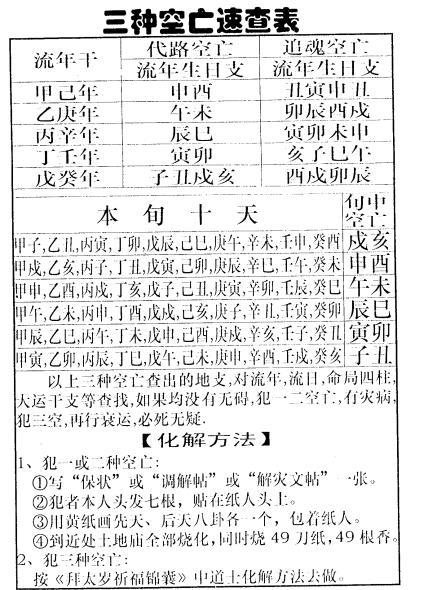 三种空亡速查表
流年干 代路空亡 追魂空亡
流年生日支 流年生日支
甲己年 申酉 丑寅申丑
乙庚年 午未 卯辰酉戌
丙辛年 辰巳 寅卯未申
丁壬年 寅卯 亥子巳午
戊癸年 子丑戌亥 酉戌卯辰
本旬十天 旬中空亡
甲子,乙丑,丙寅,丁卯,戊辰,己巳,庚午,辛未,壬申,癸酉 戌亥
甲戌,乙亥,丙子,丁丑,戊寅,己卯,庚辰,辛巳,壬午,癸未 申酉
甲申,乙酉,丙戌,丁亥,戊子,己丑,庚寅,辛卯,壬辰,癸巳 午未
甲午,乙未,丙申,丁酉,戊戌,己亥,庚子,辛丑,壬寅,癸卯 辰巳
甲辰,乙巳,丙午,丁未,戊申,己酉,庚戌,辛亥,壬子,癸丑 寅卯
甲寅,乙卯,丙辰,丁巳,戊午,己未,庚申,辛酉,壬戌,癸亥 子丑
以上三种空亡查出的地支,对流年,流日,命局四柱,
大运干支等查找,如果均没有无碍,犯一二空亡,有灾病,
犯三空,再行衰运,必死无疑.
【化解方法】
1、犯一或二种空亡:
①写“保状”或“调解帖”或“解灾文帖”一张。
②犯者本人头发七根，贴在纸人头上。
③用黄纸画先天、后天八卦各一个，包着纸人。
④到近处土地庙全部烧化,同时烧49刀纸,49根香。
2、犯三种空亡:
按《拜太岁祈福锦囊》中道士化解方法去做。